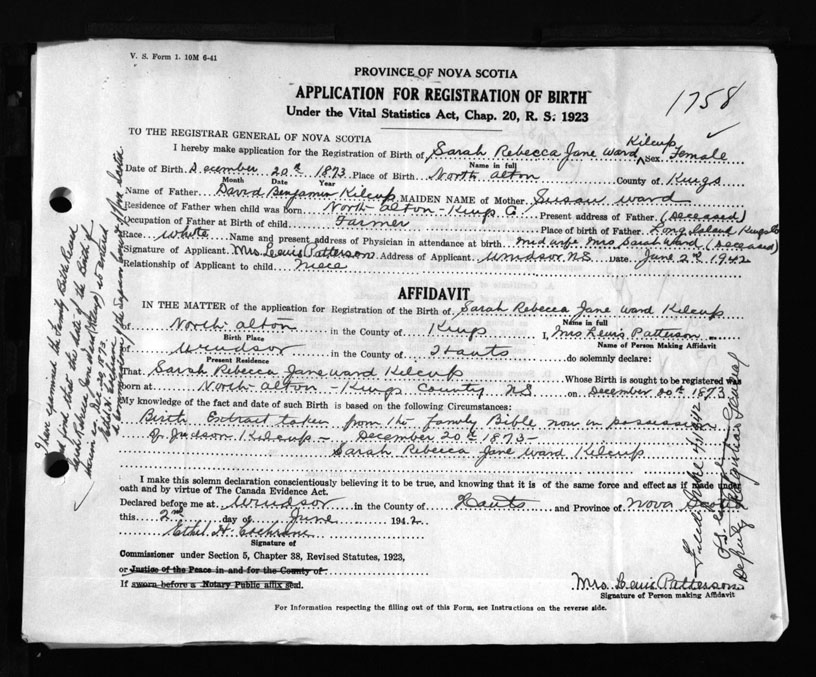 V. S. Form 1. 10M 6-41
PROVINCE OF NOVA SCOTIA
APPLICATION FOR REGISTRATION OF BIRTH
Under the Vital Statistics Act, Chap. 20, R. S. 1923
1758
TO THE REGISTRAR GENERAL OF NOVA SCOTIA
I hereby make application for the Registration of Birth of Sarah Rebecca Jane Ward Kilcup Sex Female
Name in full
Date of Birth December 20th 1873 Place of Birth North Alton County of Kings
Month Date Year
Name of Father David Benjamin Kilcup MAIDEN NAME of Mother Susan Ward
Residence of Father when child was born North Alton - Kings Co. Present address of Father (Deceased)
Occupation of Father at Birth of child Farmer Place of birth of Father Long Island Kings Co
Race White Name and present address of Physician in attendance at birth midwife Mrs Sarah Ward (Deceased)
Signature of Applicant Mrs Lewis Patterson Address of Applicant Windsor N.S Date June 2nd 1942
Relationship of Applicant to child Niece
AFFIDAVIT
IN THE MATTER of the application for Registration of the Birth of Sarah Rebecca Jane Ward Kilcup
Name in full
of North Alton in the County of Kings I, Mrs Lewis Patterson
Birth Place Name of Person Making Affidavit
of Windsor in the County of Hants do solemnly declare:
Present Residence
That Sarah Rebecca Jane Ward Kilcup Whose Birth is sought to be registered was
born at North Alton - Kings County N.S on December 20th 1873
My knowledge of the fact and date of such Birth is based on the following Circumstances:
Birth Extract taken from the family Bible now in possession
of Judson Kilcup - December 20th 1873 -
Sarah Rebecca Jane Ward Kilcup
I make this solemn declaration conscientiously believing it to be true, and knowing that it is of the same force and effect as if made under
oath and by virtue of The Canada Evidence Act.
Declared before me at Windsor in the County of Hants and Province of Nova Scotia
this 2nd day of June 1942
Ethel H. Cochrane
Signature of
Commissioner under Section 5, Chapter 38, Revised Statutes, 1923,
or Justice of the Peace in and for the County of
If sworn before a Notary Public affix seal.
Mrs Lewis Patterson
Signature of Person making Affidavit
For Information respecting the filling out of this Form, see Instructions on the reverse side.
I have examined the Family Bible Record
and find that the date of the Birth of
Sarah Rebecca Jane Ward (Kilcup) is entered
Ethel H. Cochrane
a Commissioner of the Supreme Court of Nova Scotia
Deputy Registrar General